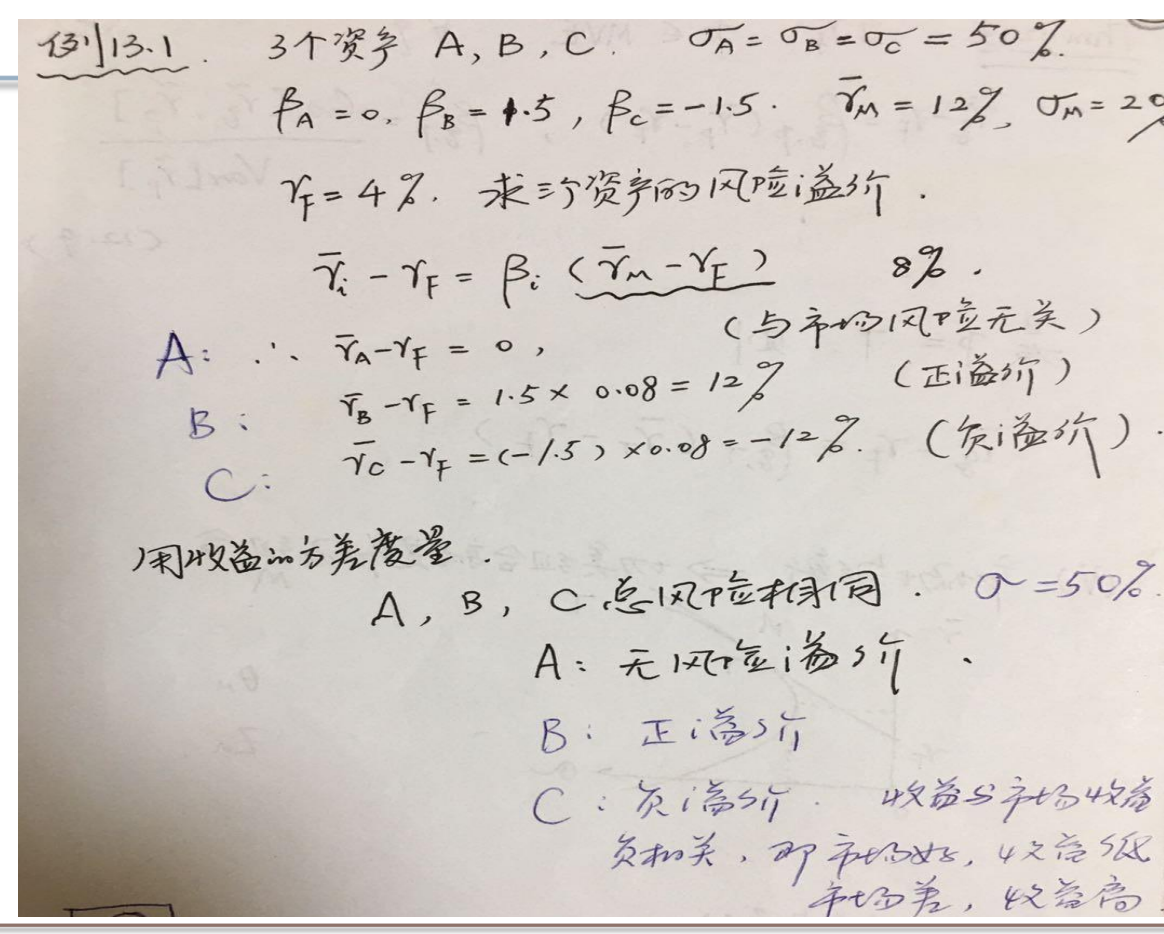 例13.1. 3个资产 A, B, C. σA = σB = σC = 50%.
βA = 0, βB = 1.5, βC = -1.5. r̄M = 12%, σM = 20
rF = 4%. 求三个资产的风险溢价.
r̄i - rF = βi (r̄M - rF) 8%.
(与市场风险无关)
A: ∴ r̄A - rF = 0,
B: r̄B - rF = 1.5 × 0.08 = 12% (正溢价)
C: r̄C - rF = (-1.5) × 0.08 = -12%. (负溢价).
用收益的方差度量.
A, B, C 总风险相同. σ = 50%.
A: 无风险溢价.
B: 正溢价
C: 负溢价. 收益与市场收益
负相关, 即市场好, 收益低
市场差, 收益高